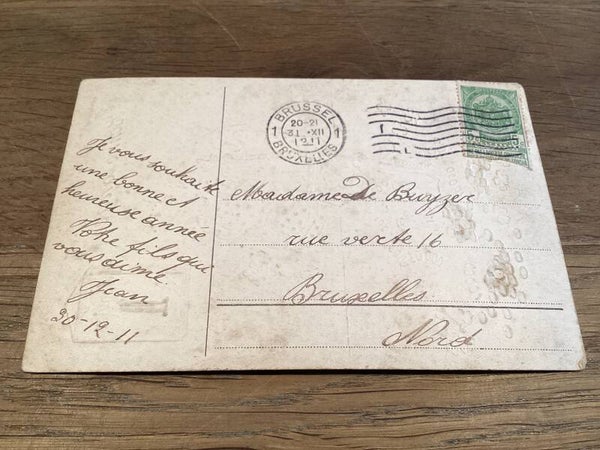 Je vous souhaite
une bonne et
heureuse année
Votre fils qui
vous aime
Jean
30-12-11
BRUSSEL
1 1
20-21
31 XII
1911
BRUXELLES
Madame De Buyzer
rue verte 16
Bruxelles
Nord